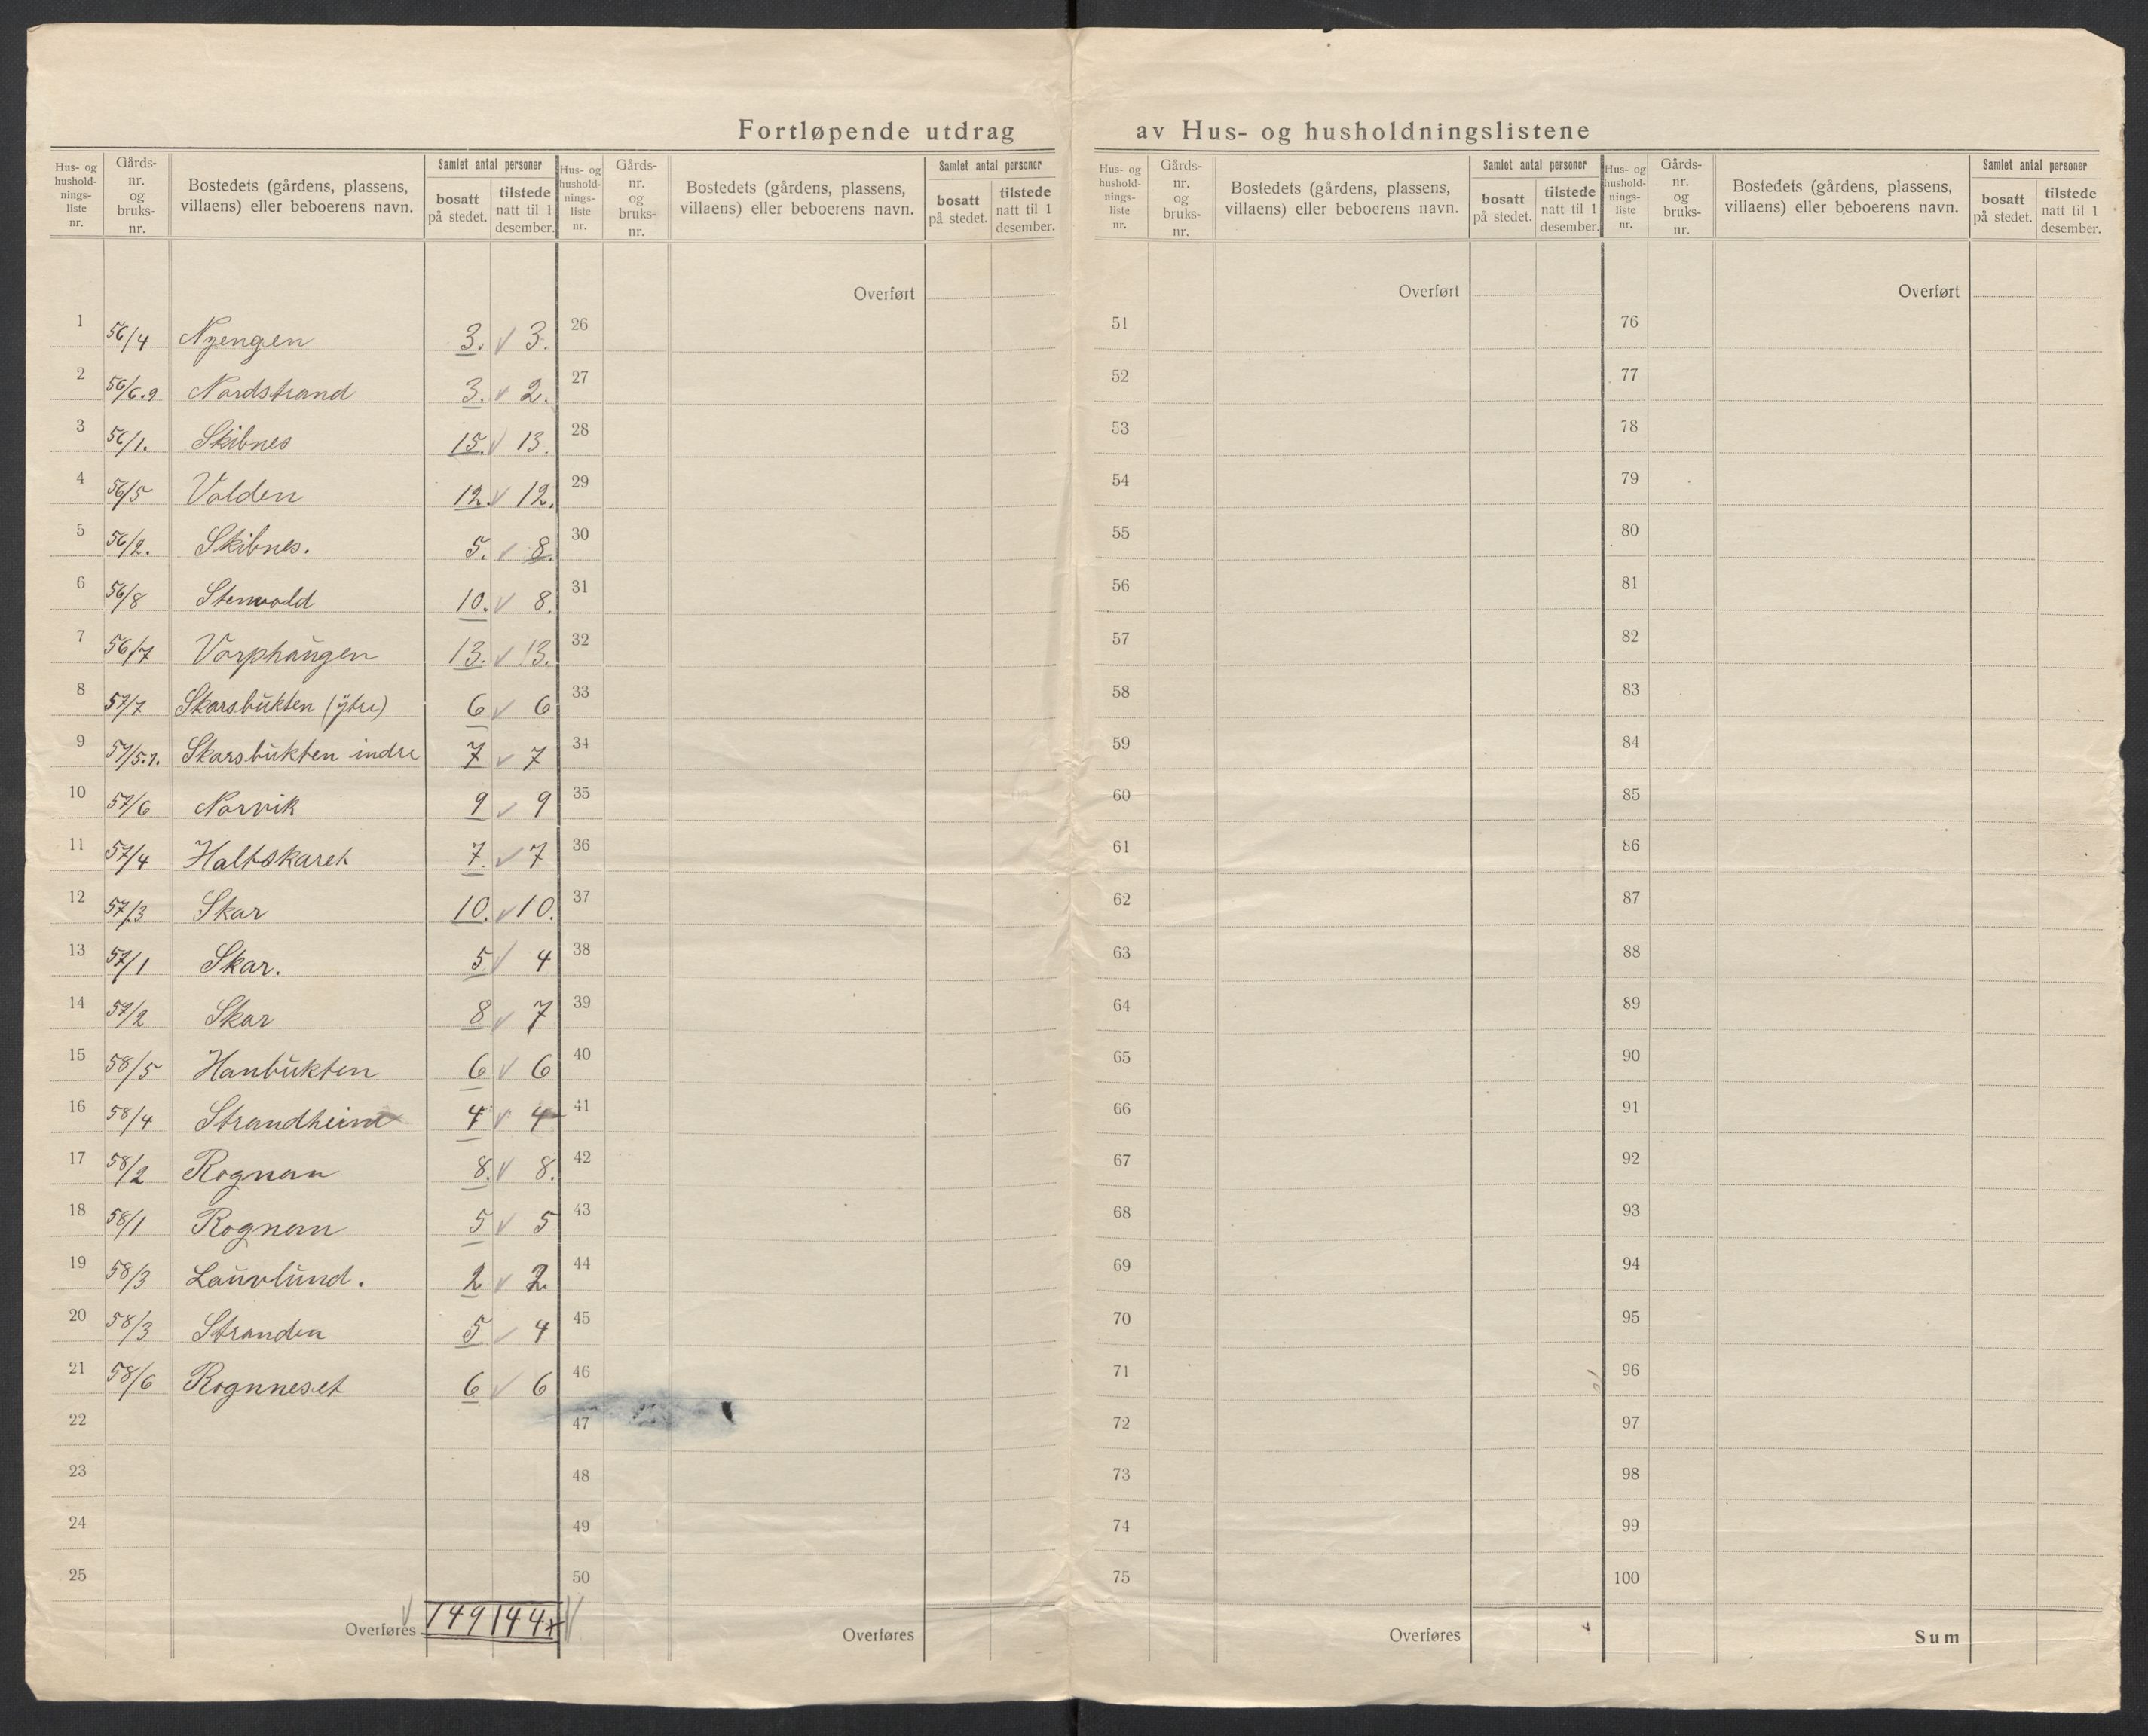 Fortløpende utdrag av Hus- og husholdningslistene
Hus- og hushold-nings-liste nr. Gårds-nr. og bruks-nr. Bostedets (gårdens, plassens, villaens) eller beboerens navn. Samlet antal personer bosatt på stedet. tilstede natt til 1 desember.
Hus- og hushold-nings-liste nr. Gårds-nr. og bruks-nr. Bostedets (gårdens, plassens, villaens) eller beboerens navn. Samlet antal personer bosatt på stedet. tilstede natt til 1 desember.
Hus- og hushold-nings-liste nr. Gårds-nr. og bruks-nr. Bostedets (gårdens, plassens, villaens) eller beboerens navn. Samlet antal personer bosatt på stedet. tilstede natt til 1 desember.
Hus- og hushold-nings-liste nr. Gårds-nr. og bruks-nr. Bostedets (gårdens, plassens, villaens) eller beboerens navn. Samlet antal personer bosatt på stedet. tilstede natt til 1 desember.
Overført Overført Overført
1 56/4 Nyengen 3. √ 3. 26 51 76
2 56/6.9 Nordstrand 3. √ 2. 27 52 77
3 56/1. Skibnes 15. √ 13. 28 53 78
4 56/5 Volden 12. √ 12. 29 54 79
5 56/2. Skibnes. 5. √ 8. 30 55 80
6 56/8 Stenvold 10. √ 8. 31 56 81
7 56/7 Vorphaugen 13. √ 13. 32 57 82
8 57/7 Skarsbukten (ytre) 6 √ 6 33 58 83
9 57/5.1. Skarsbukten indre 7 √ 7 34 59 84
10 57/6 Norvik 9 √ 9 35 60 85
11 57/4 Haltskaret 7. √ 7 36 61 86
12 57/3 Skar 10. √ 10. 37 62 87
13 57/1 Skar. 5 √ 4 38 63 88
14 57/2 Skar 8 √ 7 39 64 89
15 58/5 Hanbukten 6 √ 6 40 65 90
16 58/4 Strandheim 4 √ 4 41 66 91
17 58/2 Rognan 8. √ 8. 42 67 92
18 58/1 Rognan 5 √ 5 43 68 93
19 58/3 Lauvlund. 2 √ 2. 44 69 94
20 58/3 Stranden 5 √ 4 45 70 95
21 58/6 Rognneset 6 √ 6 46 71 96
22 47 72 97
23 48 73 98
24 49 74 99
25 50 75 100
Overføres √ 149 144 √ Overføres Overføres Sum